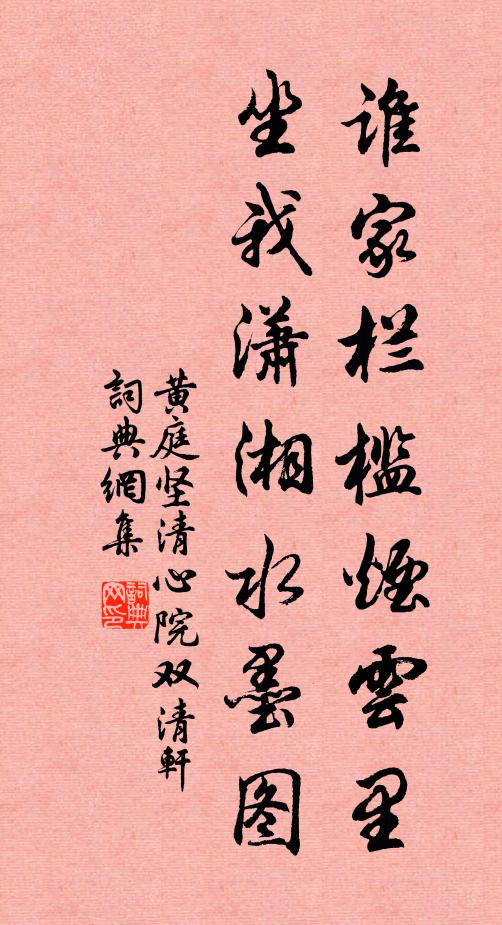 谁家栏槛煙雲里
坐我潇湘水墨图
黄庭坚清心院双清軒
詞典網集
詞典
网印